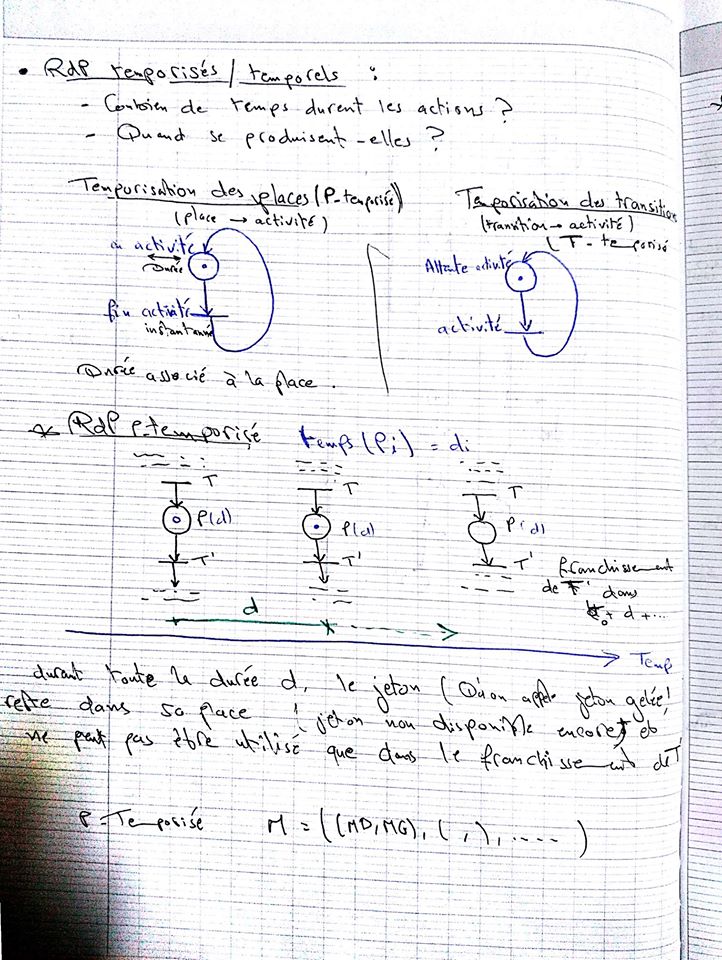 • RdP temporisés / temporels :
- Combien de temps durent les actions ?
- Quand se produisent-elles ?
Temporisation des places (P-temporisé)
(place → activité)
activité
Durée
fin activité
instantanné
Durée associé à la place.
Temporisation des transition
(transition → activité)
(T-temporisé
Attente activité
activité
* RdP P-temporisé temps(Pi) = di
T T T
P(d) P(d) P(d)
T' T' T' franchissement
de T' dans
t0 + d + ...
d
Temp
durant toute la durée d, le jeton (Qu'on appele jeton gelée!
reste dans sa place (jeton non disponible encore) et
ne peut pas être utilisé que dans le franchissement de T'
P-Temporisé M = ((MD, MG), ( , ), .....)